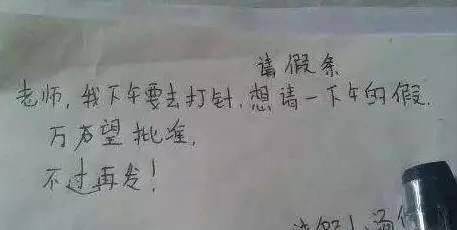 请假条
老师,我下午要去打针,想请一下午的假.
万万望批准,
不过再发!